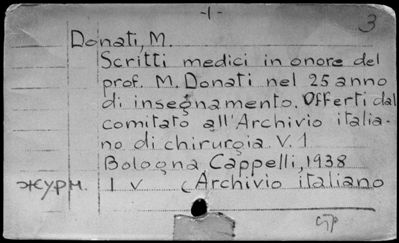 -1-
3
Donati, M.
Scritti medici in onore del
prof. M. Donati nel 25 anno
di insegnamento. Offerti dal
comitato all'Archivio italia-
no di chirurgia. V. 1
Bologna Cappelli, 1938
журн. 1 v (Archivio italiano